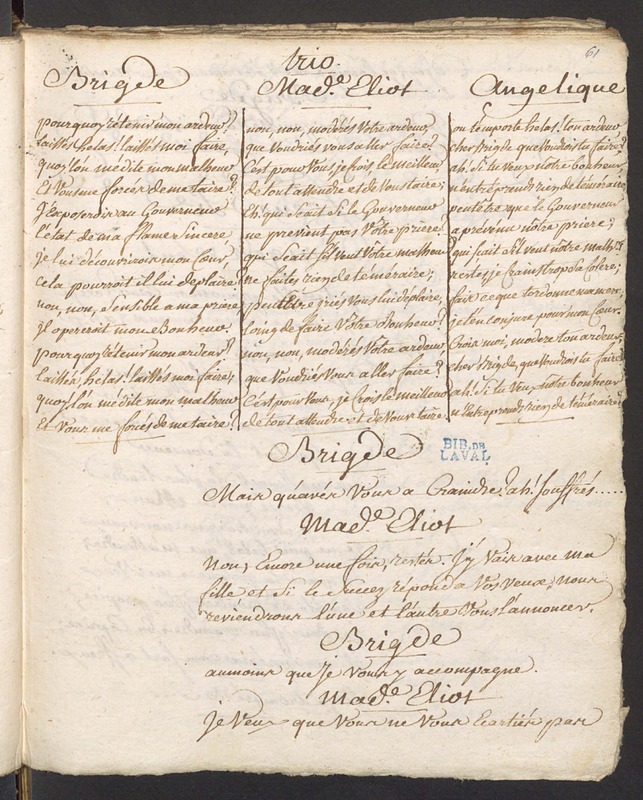 61
trio.
Brigde
pourquoy rétenir mon ardeur?
laissés helas! laissés moi faire,
quoy l'on médite mon malheur
Et Vous me forcés de me taire?
J'Exposerois au Gouverneur
l'état de ma flame sincere
je lui découvrirois mon Cœur,
Cela pourroit il lui déplaire?
non, non, sensible a ma priere
Il opereroit mon Bonheur.
pourquoy rétenir mon ardeur?
laissés, helas! laissés moi faire;
quoy l'on médite mon malheur
Et Vous me forcés de me taire?
Made. Eliot
non, non, modérés Votre ardeur,
que Voudriés vous aller faire?
C'est pour Vous, je crois, le meilleur
de tout attendre et de Vous taire;
Eh! que sçait si le Gouverneur
ne previent pas Votre priere?
qui sçait s'il veut Votre malheur
ne faites rien de téméraire;
peutêtre iriés Vous lui déplaire,
Loing de faire Votre Bonheur?
non, non, modérés Votre ardeur,
que Voudriés Vous aller faire?
C'est pour Vous, je Crois le meilleur
de tout attendre et de Vous taire
Angelique
ou t'emporte helas! ton ardeur
cher Brigde, que Voudrois tu faire?
ah! Si tu Veux notre bonheur,
n'entréprends rien de téméraire,
peutêtre que le Gouverneur
a prévenu notre priere;
qui sçait s'il veut notre malheur
reste, je Crains trop sa Colere;
fais ce que t'ordonne ma mere,
je t'en Conjure pour mon Cœur.
Crois moi, modere ton ardeur,
cher Brigde, que Voudrois tu faire
ah! Si tu Veux notre bonheur
n'Entréprends rien de téméraire?
Brigde
BIB. DE
LAVAL
Mais qu'avés Vous a Craindre? ah! souffrés.....
Made. Eliot
Non, Encore une fois, restés. J'y Vais avec ma
fille et Si le Succez répond a Vos Veux, nous
reviendrons l'une et l'autre Vous l'annoncer.
Brigde
aumoins que Je Vous y accompagne.
Made. Eliot
je Veux que Vous ne Vous Ecartiés pas